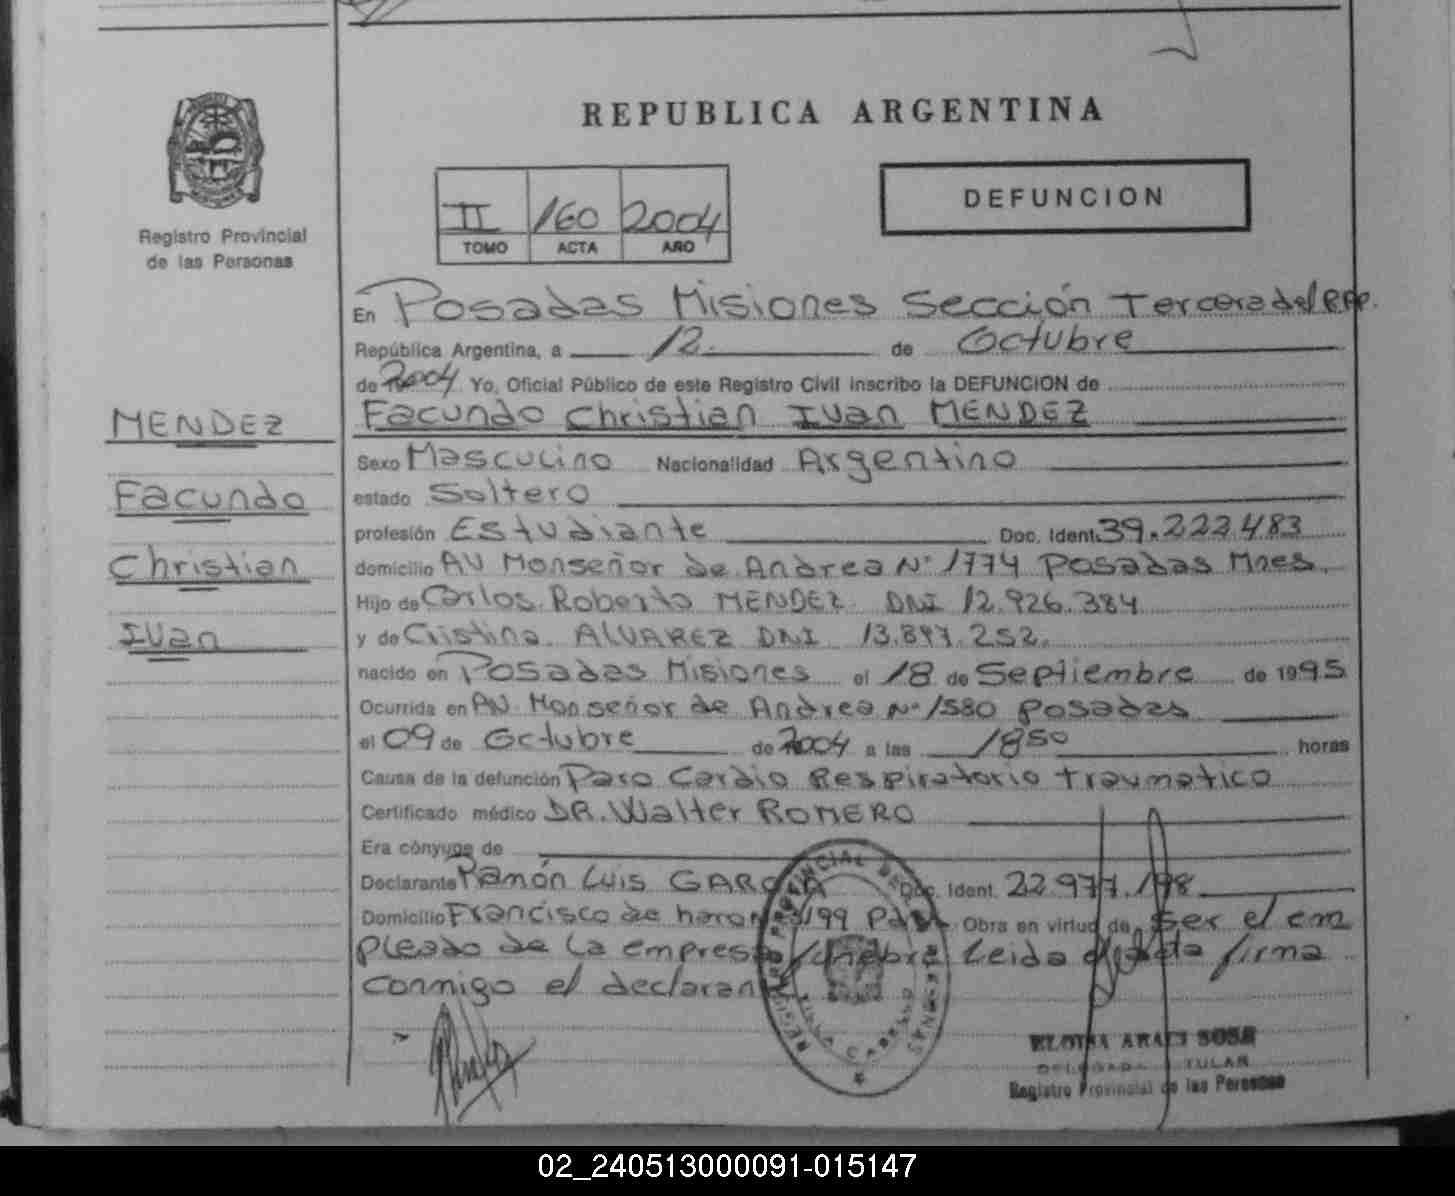 REPUBLICA ARGENTINA
DEFUNCION
II 160 2004
TOMO ACTA AÑO
Registro Provincial
de las Personas
MENDEZ
Facundo
Christian
Ivan
En Posadas Misiones Sección Tercera del R.P.P.
República Argentina, a 12. de Octubre
de 2004 Yo, Oficial Público de este Registro Civil inscribo la DEFUNCION de
Facundo Christian Ivan MENDEZ
Sexo Masculino Nacionalidad Argentino
estado Soltero
profesión Estudiante Doc. Ident. 39.223.483
domicilio AV Monseñor de Andrea N° 1774 Posadas Mnes.
Hijo de Carlos Roberto MENDEZ DNI 12.926.384
y de Cristina ALVAREZ DNI 13.897.252.
nacido en Posadas Misiones el 18 de Septiembre de 1995
Ocurrida en AV. Monseñor de Andrea N° 1580 Posadas
el 09 de Octubre de 2004 a las 1850 horas
Causa de la defunción Paro Cardio Respiratorio traumatico
Certificado médico DR. Walter ROMERO
Era cónyuge de
Declarante Ramón Luis GARCIA Doc. Ident. 22.977.198
Domicilio Francisco de haro N° 3199 Pdas. Obra en virtud de ser el em
pleado de la empresa funebre Leida el acta firma
conmigo el declaran
REGISTRO PROVINCIAL DE LAS PERSONAS
ELOISA ARACI SOSA
DELEGADA TITULAR
Registro Provincial de las Personas
02_240513000091-015147